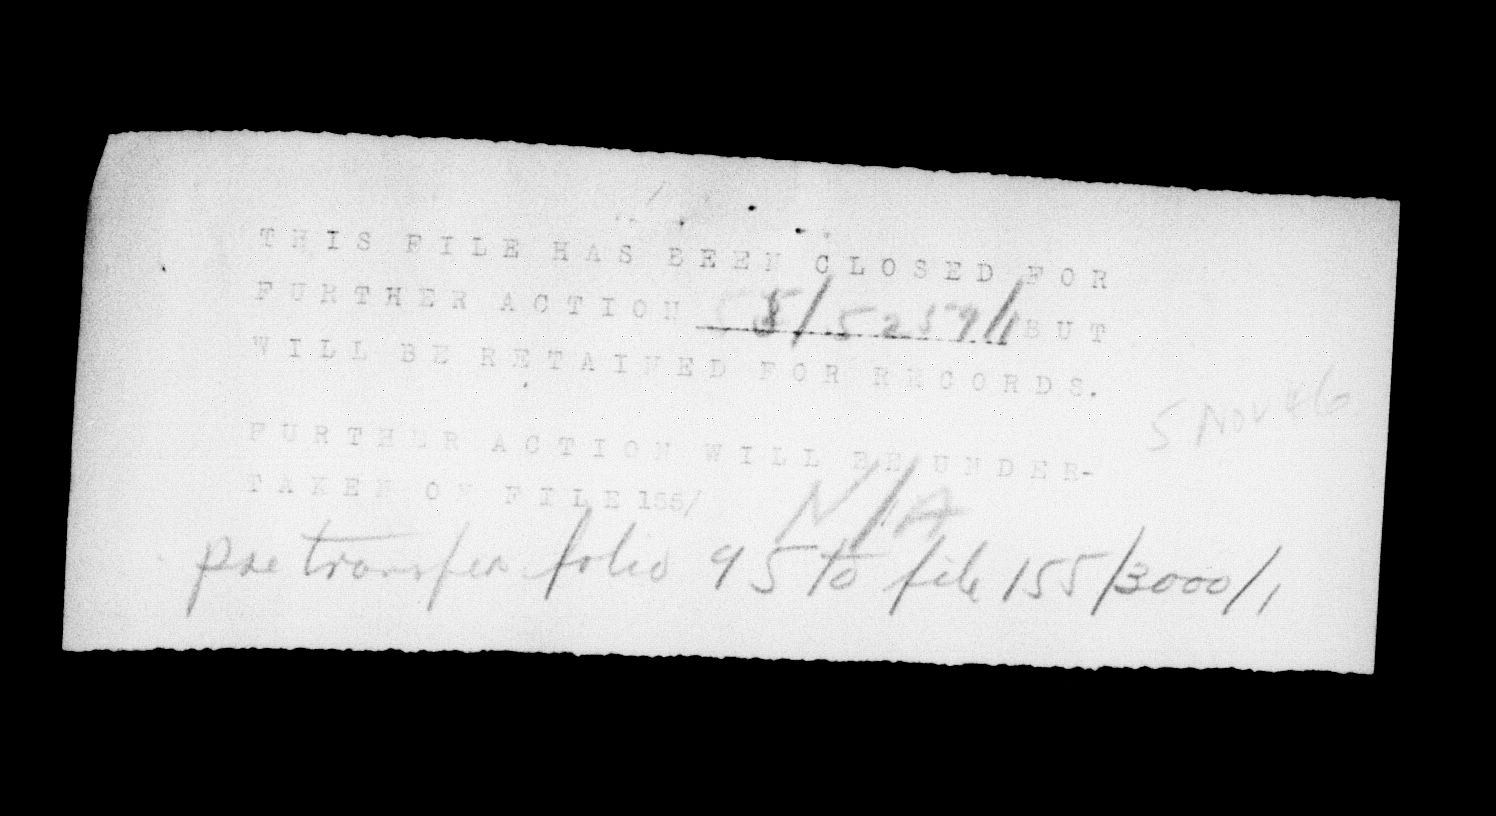 THIS FILE HAS BEEN CLOSED FOR
FURTHER ACTION 5/5259/1 BUT
WILL BE RETAINED FOR RECORDS.
5 Nov 46
FURTHER ACTION WILL BE UNDER-
TAKEN ON FILE 155/ N/A
pse transfer folio 95 to file 155/3000/1